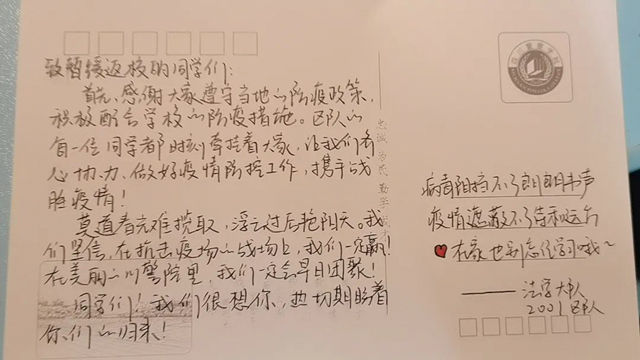 致暂缓返校的同学们:
首先,感谢大家遵守当地的防疫政策,
积极配合学校的防疫措施。区队的
每一位同学都时刻牵挂着大家,让我们齐
心协力、做好疫情防控工作,携手战
胜疫情!
莫道春光难揽取,浮云过后艳阳天。我
们坚信,在抗击疫场的战场上,我们一定赢!
在美丽的川警院里,我们一定会早日团聚!
同学们!我们很想你,热切期盼着
你们的归来!
病毒阻挡不了朗朗书声
疫情遮蔽不了诗和远方
在家也别忘了学习哦~
——法学大队
2001区队